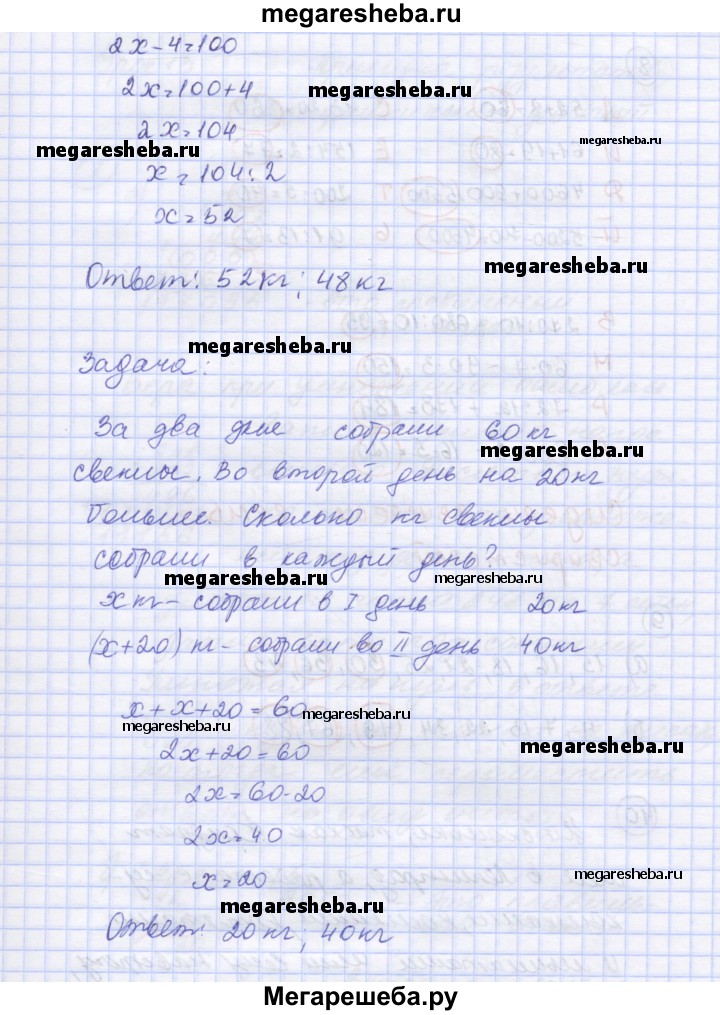 megaresheba.ru
2x-4=100
2x=100+4
megaresheba.ru
2x=104
megaresheba.ru
megaresheba.ru
x=104:2
x=52
Ответ: 52кг; 48кг
megaresheba.ru
megaresheba.ru
Задача:
За два дня собрали 60кг
megaresheba.ru
свеклы. Во второй день на 20кг
больше. Сколько кг свеклы
собрали в каждый день?
megaresheba.ru
megaresheba.ru
x кг - собрали в I день 20кг
(x+20) кг - собрали во II день 40кг
x+x+20=60
megaresheba.ru
megaresheba.ru
2x+20=60
megaresheba.ru
2x=60-20
2x=40
x=20
megaresheba.ru
megaresheba.ru
Ответ: 20кг; 40кг
Мегарешеба.ру